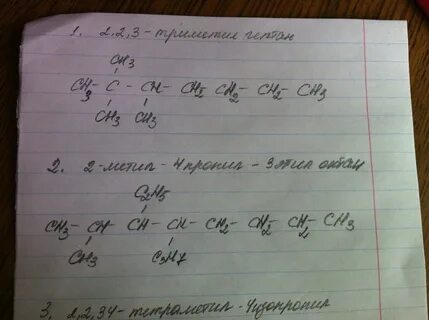 1. 2,2,3 - триметил гептан
CH3
CH3 - C - CH - CH2 CH2 - CH2 - CH3
CH3 CH3
2. 2-метил - 4пропил - 3этил октан
C2H5
CH3 - CH - CH - CH - CH2 - CH2 - CH2 CH3
CH3 C3H7
3. 2,2,34 - тетраметил - 4изопропил